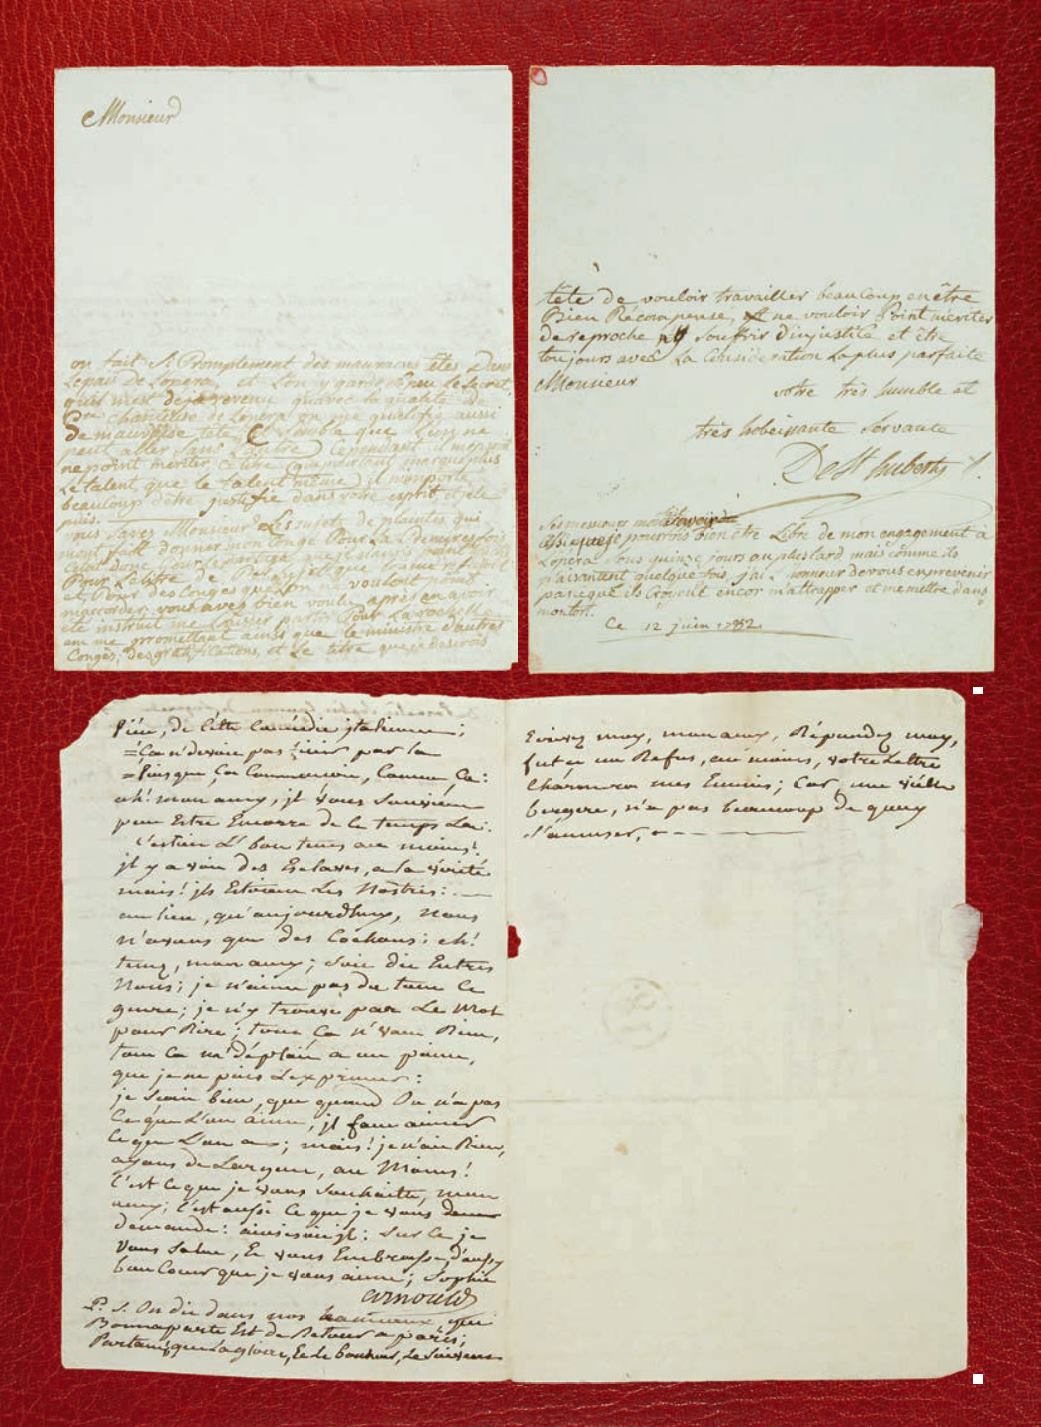 Monsieur
on fait si Promptement des mauvaises têtes dans
Lepais de Lopera, et Lon y garde si peu Le secret,
qu'il m'est deja revenu qu'avec la qualité de
chanteuse de Lopera on me qualifie aussi
De mauvaise tete, il semble que L'un ne
peut aller sans L'autre Cependant
ne point meriter ce titre que pourtant marque plus
Le talent que le talent même, il m'importe
beaucoup d'être justifié dans votre esprit et je le
puis.
vous savez Monsieur Les sujets de plaintes qui
m'ont fait donner mon congé Pour La
Pour Le titre de
et Pour des Congés que Lon vouloit point
m'accorder vous avez bien voulu après en avoir
été instruit me Laisser partir Pour La rochelle
en me promettant ainsi que le ministre d'autres
Congés, des gratifications, et Le titre que je desirois
tête de vouloir travailler beaucoup en être
Bien Récompensé, ne vouloir Point meriter
de reproche ny souffrir d'injustice et être
toujours avec La Consideration La plus parfaite
Monsieur
votre très humble et
très hobeissante Servante
De St huberty
Ses messieurs
que je pourrois bien être Libre de mon engagement à
Lopéra sous quinze jours au plus tard mais comme ils
plaisantent quelque fois, j'ai L'honneur de vous en prévenir
parce que ils Croyent encor m'attrapper et me mettre dans
montort.
Ce 12 juin 1782
de cette Comédie jtalienne;
=Ça n'devoit pas finir par la
=Puisque ça Commençoit, Comme ça:
ah! mon amy, jl vous souvien
peut Estre Encorre de ce temps La:
c'étoit L' bon tems au moins!
jl y avoit des Esclaves, a la vérité
mais! jls Etoient Les Nostres:
au lieu, qu'aujourdhuy, nous
n'avons que des Cochons; eh!
tenez, mon amy; soit dit Entre
Nous; je n'aime pas du tout Ce
genre; je n'y trouve pas Le mot
pour Rire; tout Ça n'vaut Rien,
tout Ca m'déplait a un point,
que je ne puis Lexprimer:
je sais bien, que quand On n'a pas
Ce que L'on aime, jl faut aimer
Ce que L'on a; mais! je n'ai Rien,
ayons de Largent, au Moins!
C'est Ce que je vous souhaitte, mon
amy; C'est aussi Ce que je vous
demande: ainsi soit jl: Sur Ce je
Vous Salue, Et vous Embrasse, d'aussy
bon Cœur que je vous aime; Sophie
arnould
P. S. On dit dans nos hameaux que
Bonnaparte Est de Retour a paris;
Partant, que la gloire, Et le bonheur, Le suivent
Ecrivez moy, mon amy, Répondez moy,
fut ce un Refus, au moins, votre Lettre
Charmera mes Ennuis; Car, une vieille
bergere, n'a pas beaucoup de quoy
s'amuser,